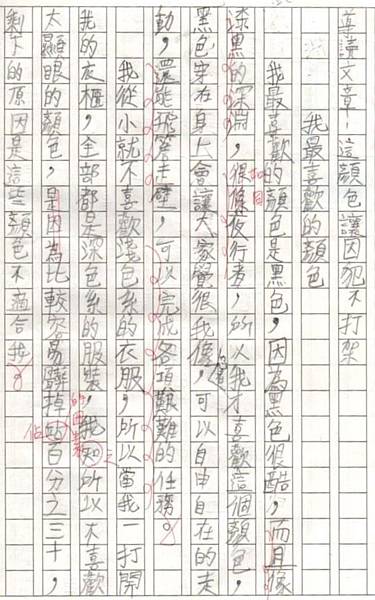 導讀文章:這顏色讓囚犯不打架
我最喜歡的顏色
我最喜歡的顏色是黑色,因為黑色很酷,而且像
漆黑的深淵,很像夜行者,所以我才喜歡這個顏色,
黑色穿在身上會讓大家覺很我像,可以自由自在的走
動,還能飛簷走壁,可以完成各項艱難的任務。
我從小就不喜歡淺色系的衣服,所以當我一打開
我的衣櫃,全部都是深色系的服裝,我知所以不喜歡
太顯眼的顏色,是因為比較容易髒掉站百分之三十,
剩下的原因是這些顏色不適合我。